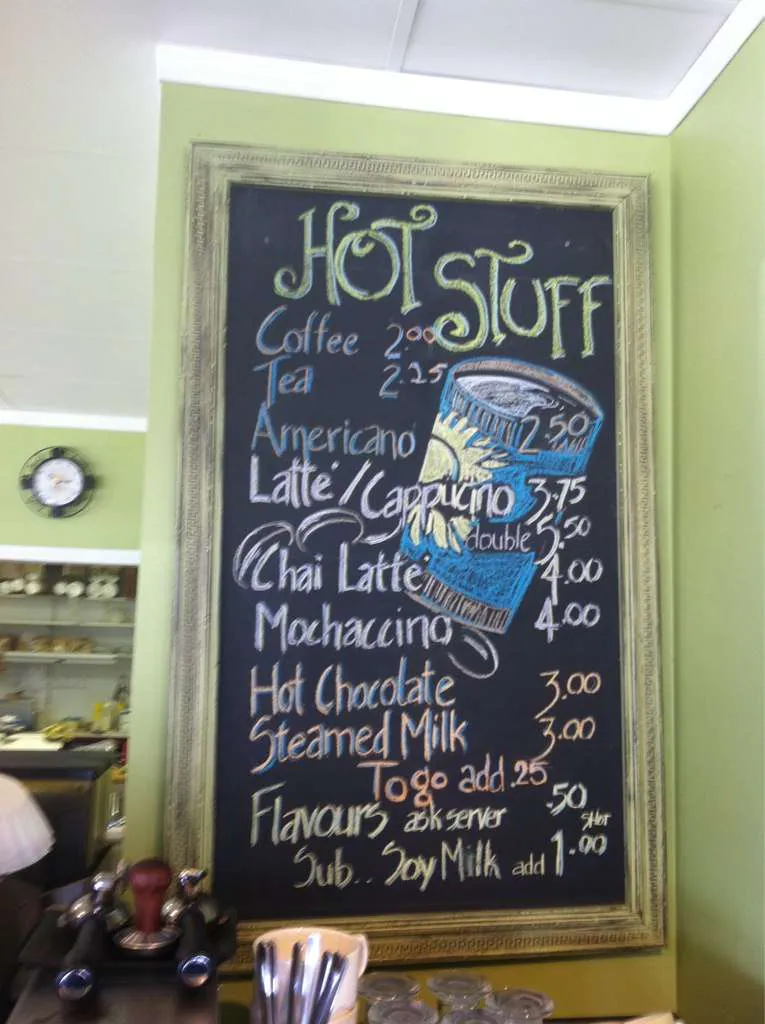 Hot Stuff
Coffee 2.00
Tea 2.25
Americano 2.50
Latte/Cappucino 3.75
double 5.50
Chai Latte 4.00
Mochaccino 4.00
Hot Chocolate 3.00
Steamed Milk 3.00
To go add .25
Flavours ask server .50 shot
Sub.. Soy Milk add 1.00